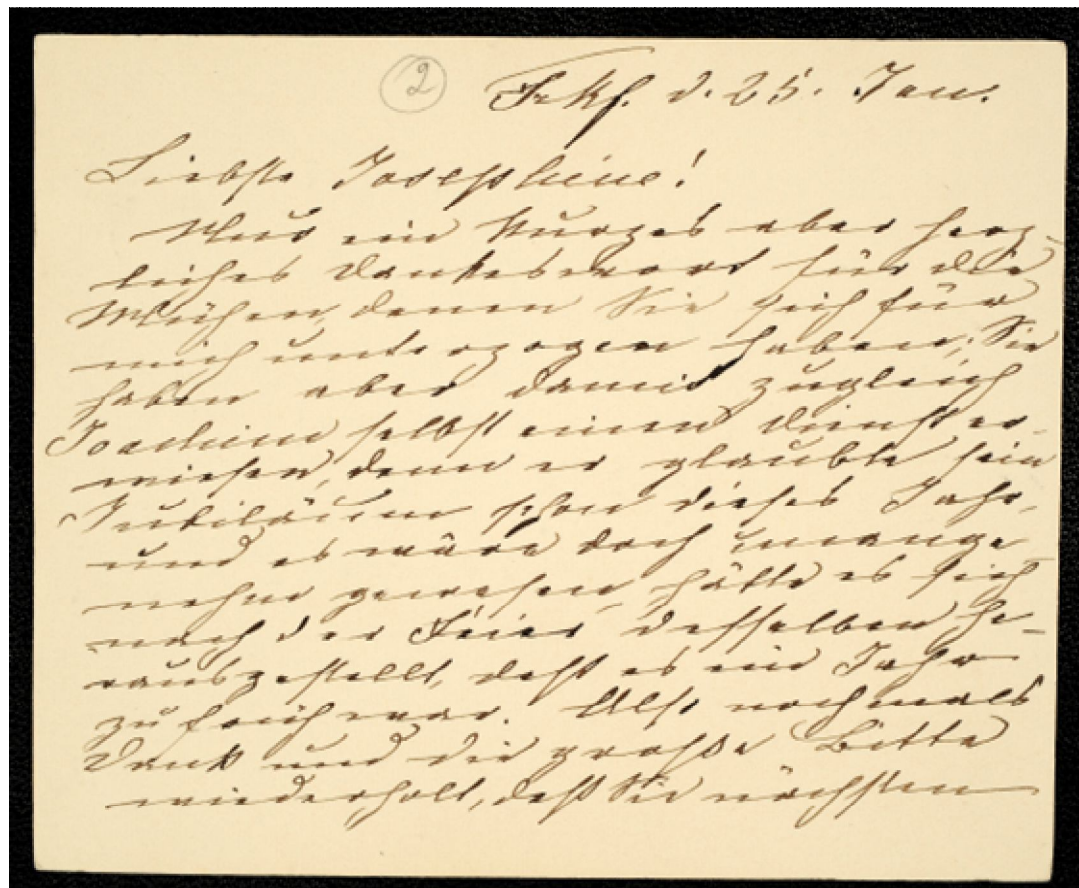 2
Frkf. d. 25. Jan.
Liebste Josephine!
Nur ein kurzes aber herz-
liches Dankeswort für die
Mühen, denen Sie sich für
mich unterzogen haben; Sie
haben aber damit zugleich
Joachim selbst einen Dienst er-
wiesen, denn er glaubte sein
Jubiläum schon dieses Jahr,
und es wäre doch unange
nehm gewesen, hätte es sich
nach der Feier desselben he-
rausgestellt, daß es ein Jahr
zu früh war. Also nochmals
Dank und die große Bitte
wiederholt, daß Sie nächsten